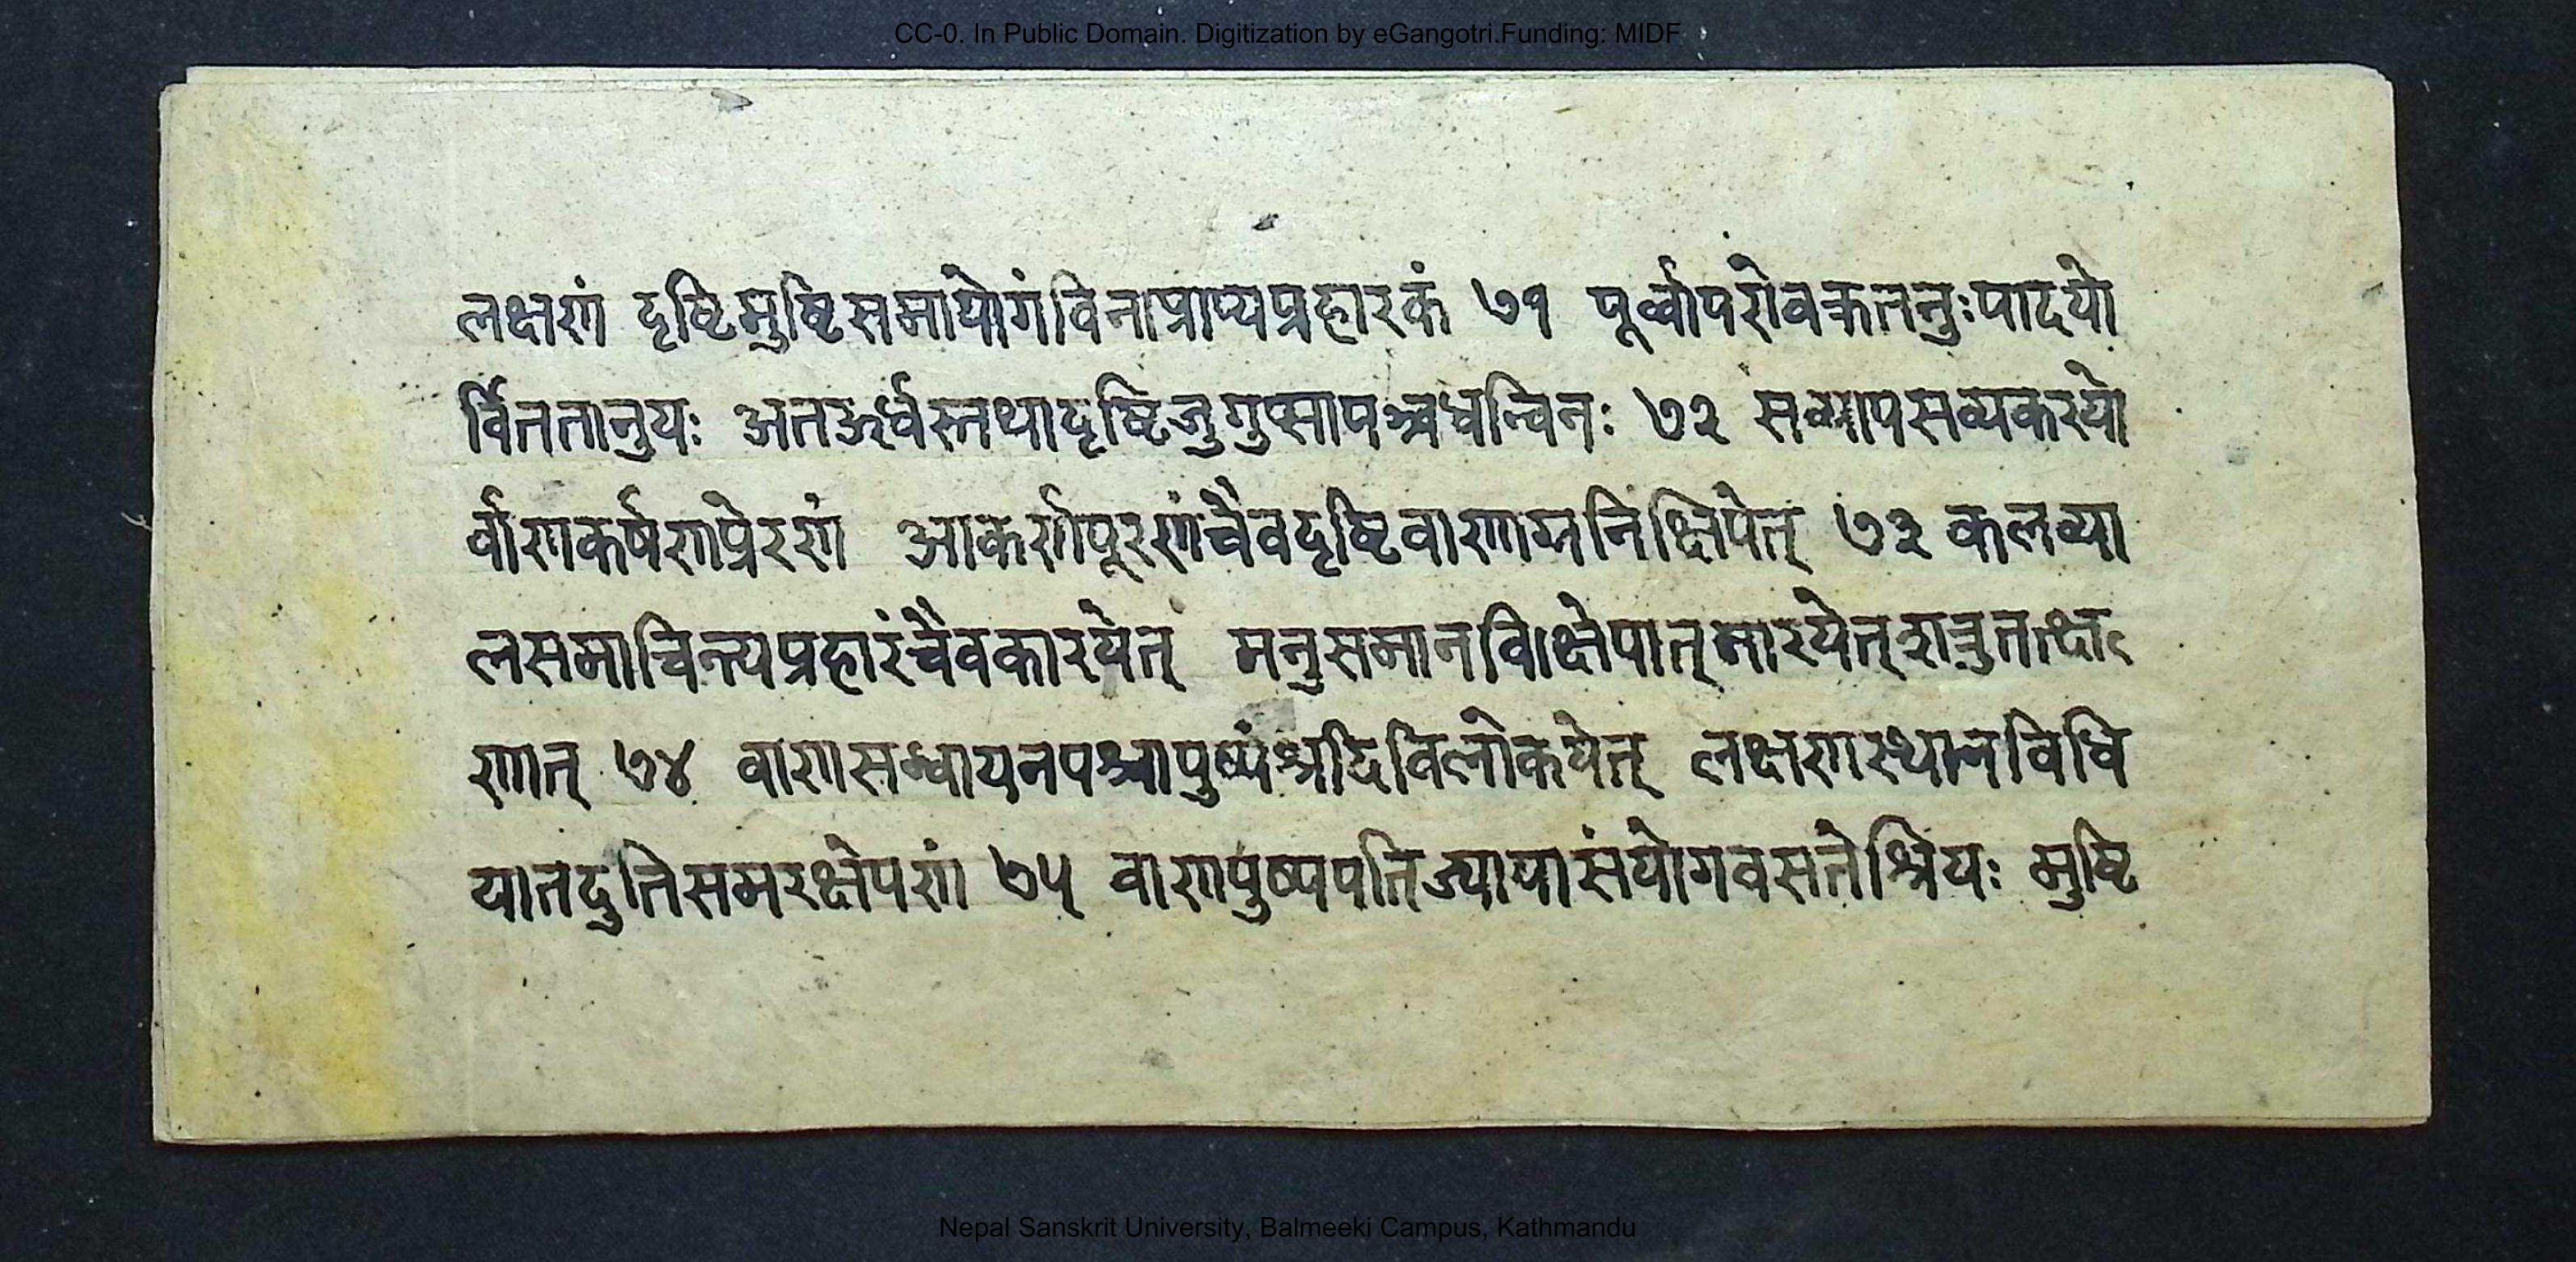 CC-0. In Public Domain. Digitization by eGangotri.Funding: MIDF
लक्षणं दृष्टिमुष्टिसमायोगंविनाप्राप्यप्रहारकं ७१ पूर्व्वापरोवक्रतनुःपादयो
र्विततानुयः अतऊर्ध्वस्तथादृष्टिजुगुप्सापश्चधन्विनः ७२ सव्यापसव्यकरयो
र्वाणकर्षणप्रेरणं आकर्णपूरणंचैवदृष्टिवाणाग्रनिक्षिपेत् ७३ कलव्या
लसमाचिन्त्यप्रहारंचैवकारयेत् मनुसमानविक्षेपात्मारयेत्शत्रुतत्क्ष
णात् ७४ वाणसन्धायनपश्चापुष्पंश्चदिविलोकयेत् लक्षणस्थानविधि
यातदुतिसमरक्षेपणं ७५ वाणपुष्पपतिज्यायासंयोगवसतेश्रियः मुष्टि
Nepal Sanskrit University, Balmeeki Campus, Kathmandu